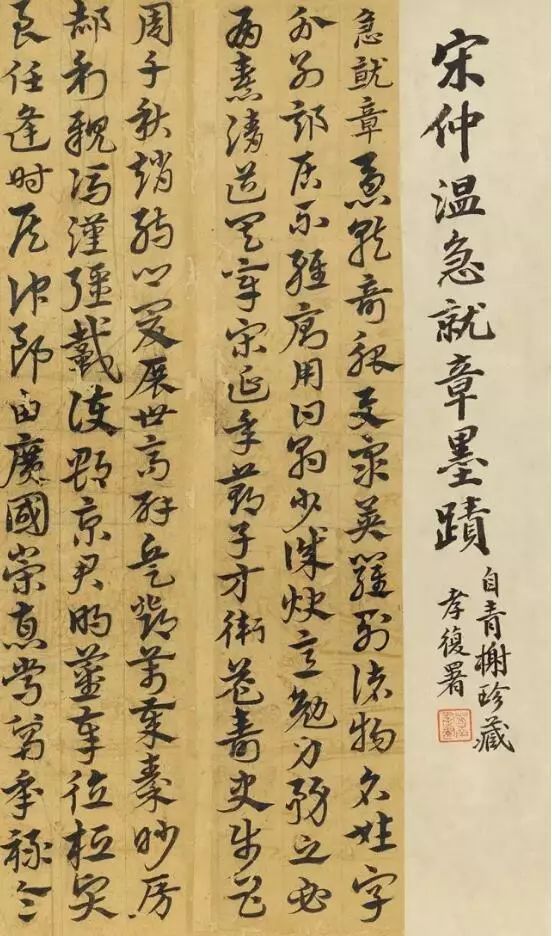 宋仲温急就章墨蹟
自青榭珍藏
孝復署
急就章急就奇觚與衆異羅列諸物名姓字
分別部居不雜廁用日約少誠快意勉力務之必
有憙請道其章宋延年鄭子方衛益壽史步昌
周千秋趙孺卿爰展世高辟兵鄧萬歲秦眇房
郝利親馮漢彊戴護郡景君明董奉德桓賢
良任逢時侯仲郎由廣國榮惠常烏承祿令